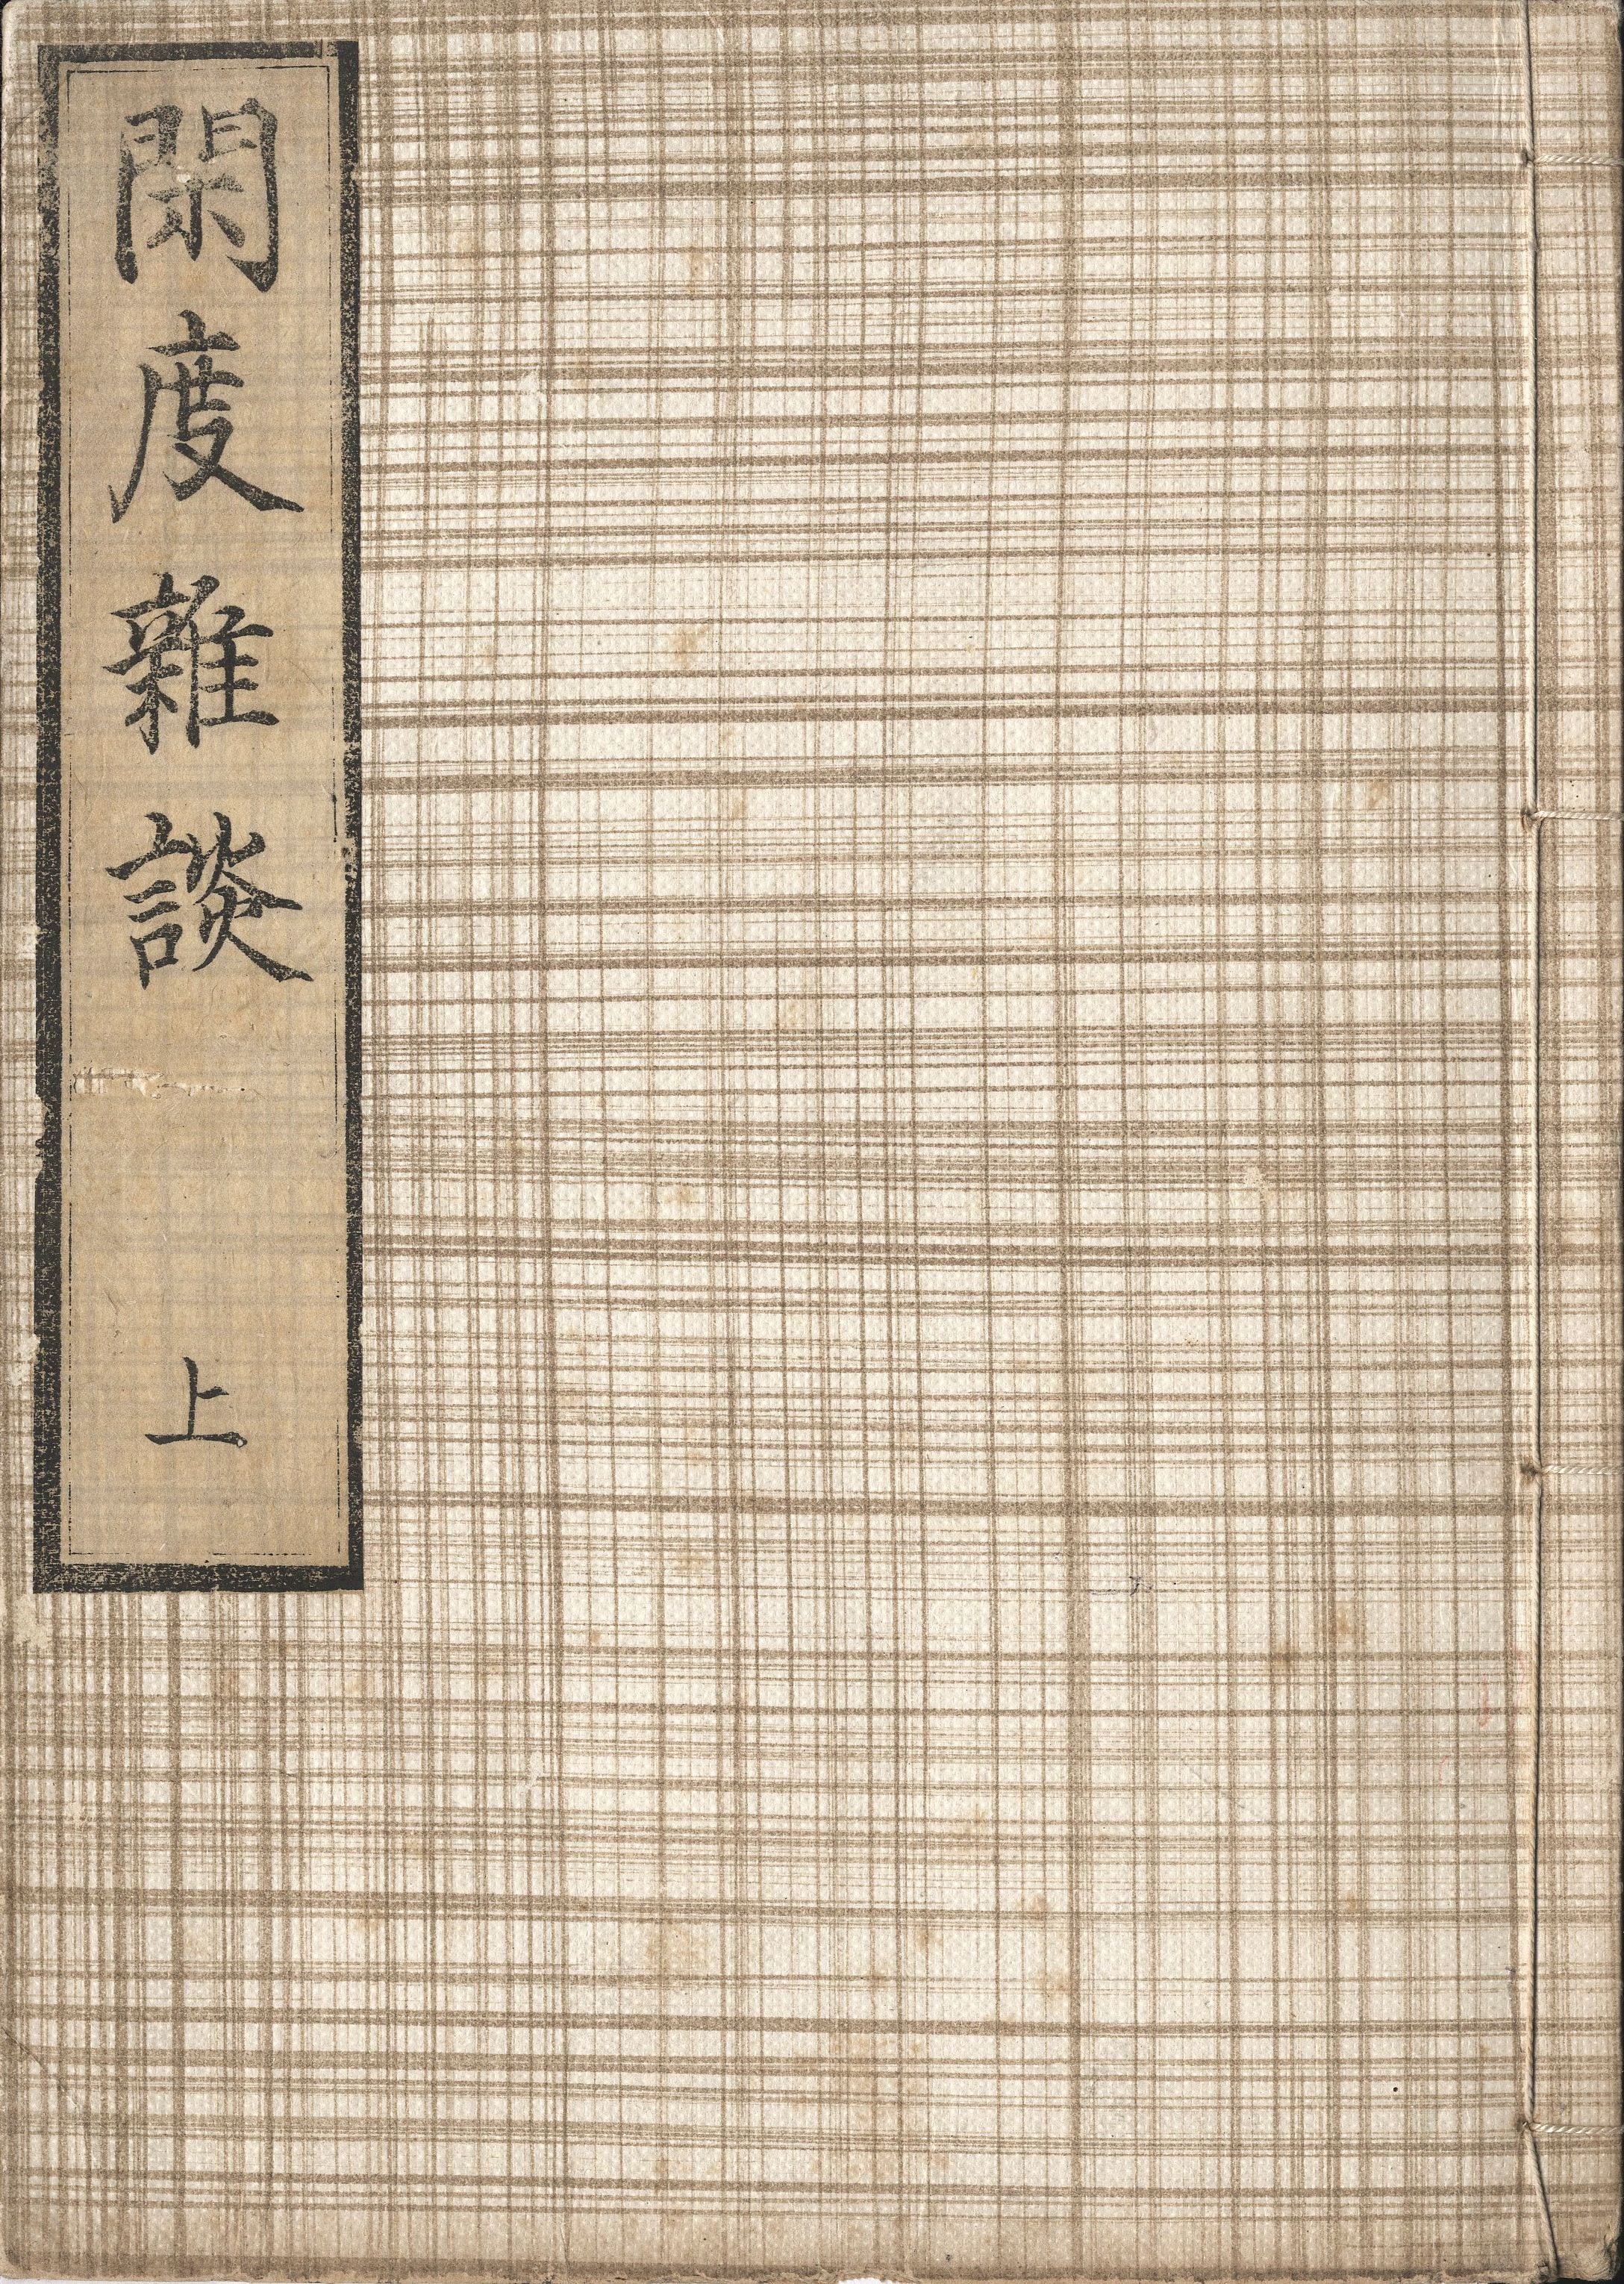 閑度雜談
上